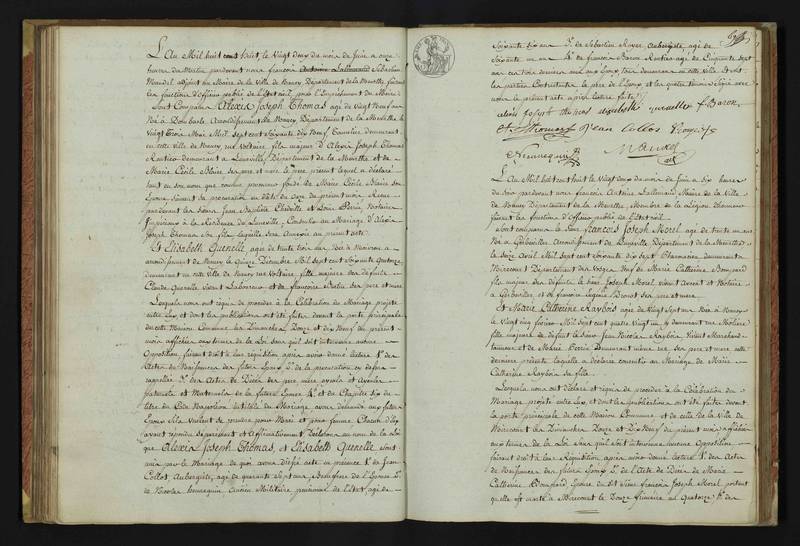 L'An Mil huit cent huit, le Vingt deux du mois de Juin a onze
heures du Matin pardevant nous françois Antoine Lallemand Sébastien
Mandel adjoint au Maire de la Ville de Nancy Département de la Meurthe faisant
les fonctions d'officier public de l'Etat civil, pour l'Empêchement du Maire
Sont Comparus Alexis Joseph Thomas agé de Vingt Neuf ans
Né à Dombasle, Arrondissement de Nancy, Département de la Meurthe le
Vingt trois Mai Mil sept cent Soixante dix Neuf demeurant
en cette ville de Nancy rue Voltaire fils majeur d'Alexis Joseph Thomas
Rentier demeurant a Lunéville, Département de la Meurthe et de
Marie Cécile ses pere et mere le pere présent lequel a déclaré
tant en son nom que comme porteur de Marie Cécile son
Epouse suivant sa procuration en date du onze du présent mois Reçue
pardevant les Sieurs Jean Baptiste et Louis Perrin, Notaires
Impériaux à la Résidence de Lunéville, Consentir au Mariage d'Alexis
Joseph Thomas son fils
Et Elisabeth Quenelle, agée de trente trois ans Née à
arrondissement de Nancy le Quinze Décembre Mil sept cent Soixante Quatorze
demeurant en cette Ville de Nancy rue Voltaire, fille majeure des défunts
Claude Quenelle vivant Laboureur et de françoise ses pere et mere
Lesquels nous ont requis de procéder à la Célébration du Mariage projeté
entre Eux, et dont les publications ont été faites devant la porte principale
de cette Maison Commune les Dimanches Douze et dix Neuf du présent
mois affichées aux termes de la Loi sans qu'il soit intervenu aucune
Opposition, faisant droit à leur réquisition après avoir donné lecture 1° des
Actes de Naissances des futurs Epoux 2° de la procuration cy dessus
rappellée 3° des Actes de Décès des pere mere ayeuls et Ayeules
paternels et Maternels de la future Epouse 4° et du Chapitre six du
titre du Code Napoléon intitulé du Mariage avons demandé aux futurs
Epoux s'ils Veulent se prendre pour Mari et pour femme Chacun d'Eux
ayant répondu séparément et affirmativement Déclarons au nom de la Loi
que Alexis Joseph Thomas, et Elisabeth Quenelle sont
unis par le Mariage de quoi avons dressé acte en présence 1° de Jean
Collot Aubergiste, agé de quarante Sept ans, Beaufrere de l'Epouse 2°
de Nicolas hennequin Ancien Militaire pensionné de l'Etat, agé de
Soixante six ans 3° de Sébastien Royer, Aubergiste, agé de
Soixante un ans 4° de françois Baron Rentier agé de Cinquante sept
ans ces trois derniers amis aux Epoux tous demeurant en cette Ville Et ont
les parties Contractantes le pere de l'Epoux et les quatre témoins Signé avec
nous le présent acte après lecture faite
alexis joseph thomas elisabeth quenelle f Baron
Jean Collot Royer
hennequin Mandel
L'An Mil huit cent huit le Vingt deux du mois de Juin a six heures
du Soir pardevant nous françois Antoine Lallemand Maire de la Ville
de Nancy Département de la Meurthe, Membre de la Légion d'honneur
faisant les fonctions d'Officier public de l'Etat civil
Sont comparus le Sieur françois Joseph Morel agé de trente un ans
Né à Gerbeviller, Arrondissement de Lunéville Département de la Meurthe le
Seize Avril Mil sept cent Soixante dix sept Pharmacien demeurant a
Mirecourt Département des Vosges Veuf de Marie Catherine Bompard
fils majeur des défunts le Sieur Joseph Morel vivant Avocat et Notaire
à Gerbeviller, et de françoise ses pere et mere
Et Marie Catherine Raybois agée de Vingt sept ans Née à Nancy
le Vingt cinq février Mil sept cent quatre Vingt un y demeurant rue Moliere
fille majeure de défunt le Sieur Jean Nicolas Raybois Vivant Marchand
tanneur et de Marie Perrin demeurant ses pere et mere cette
derniere présente laquelle a déclaré consentir au Mariage de Marie
Catherine Raybois sa fille
Lesquels nous ont déclaré et requis de procéder à la Célébration du
Mariage projeté entre Eux, et dont les publications ont été faites devant
la porte principale de cette Maison Commune et de celle de la Ville de
Mirecourt les Dimanches Douze et Dix Neuf du présent mois affichées
aux termes de la Loi sans qu'il soit intervenu aucune Opposition
faisant droit à leur Réquisition après avoir donné lecture 1° des Actes
de Naissances des futurs Epoux 2° de l'Acte de Décès de Marie
Catherine Bompard, Epouse du dit Sieur françois Joseph Morel portant
qu'elle est morte à Mirecourt le Douze frimaire an Quatorze 3° des